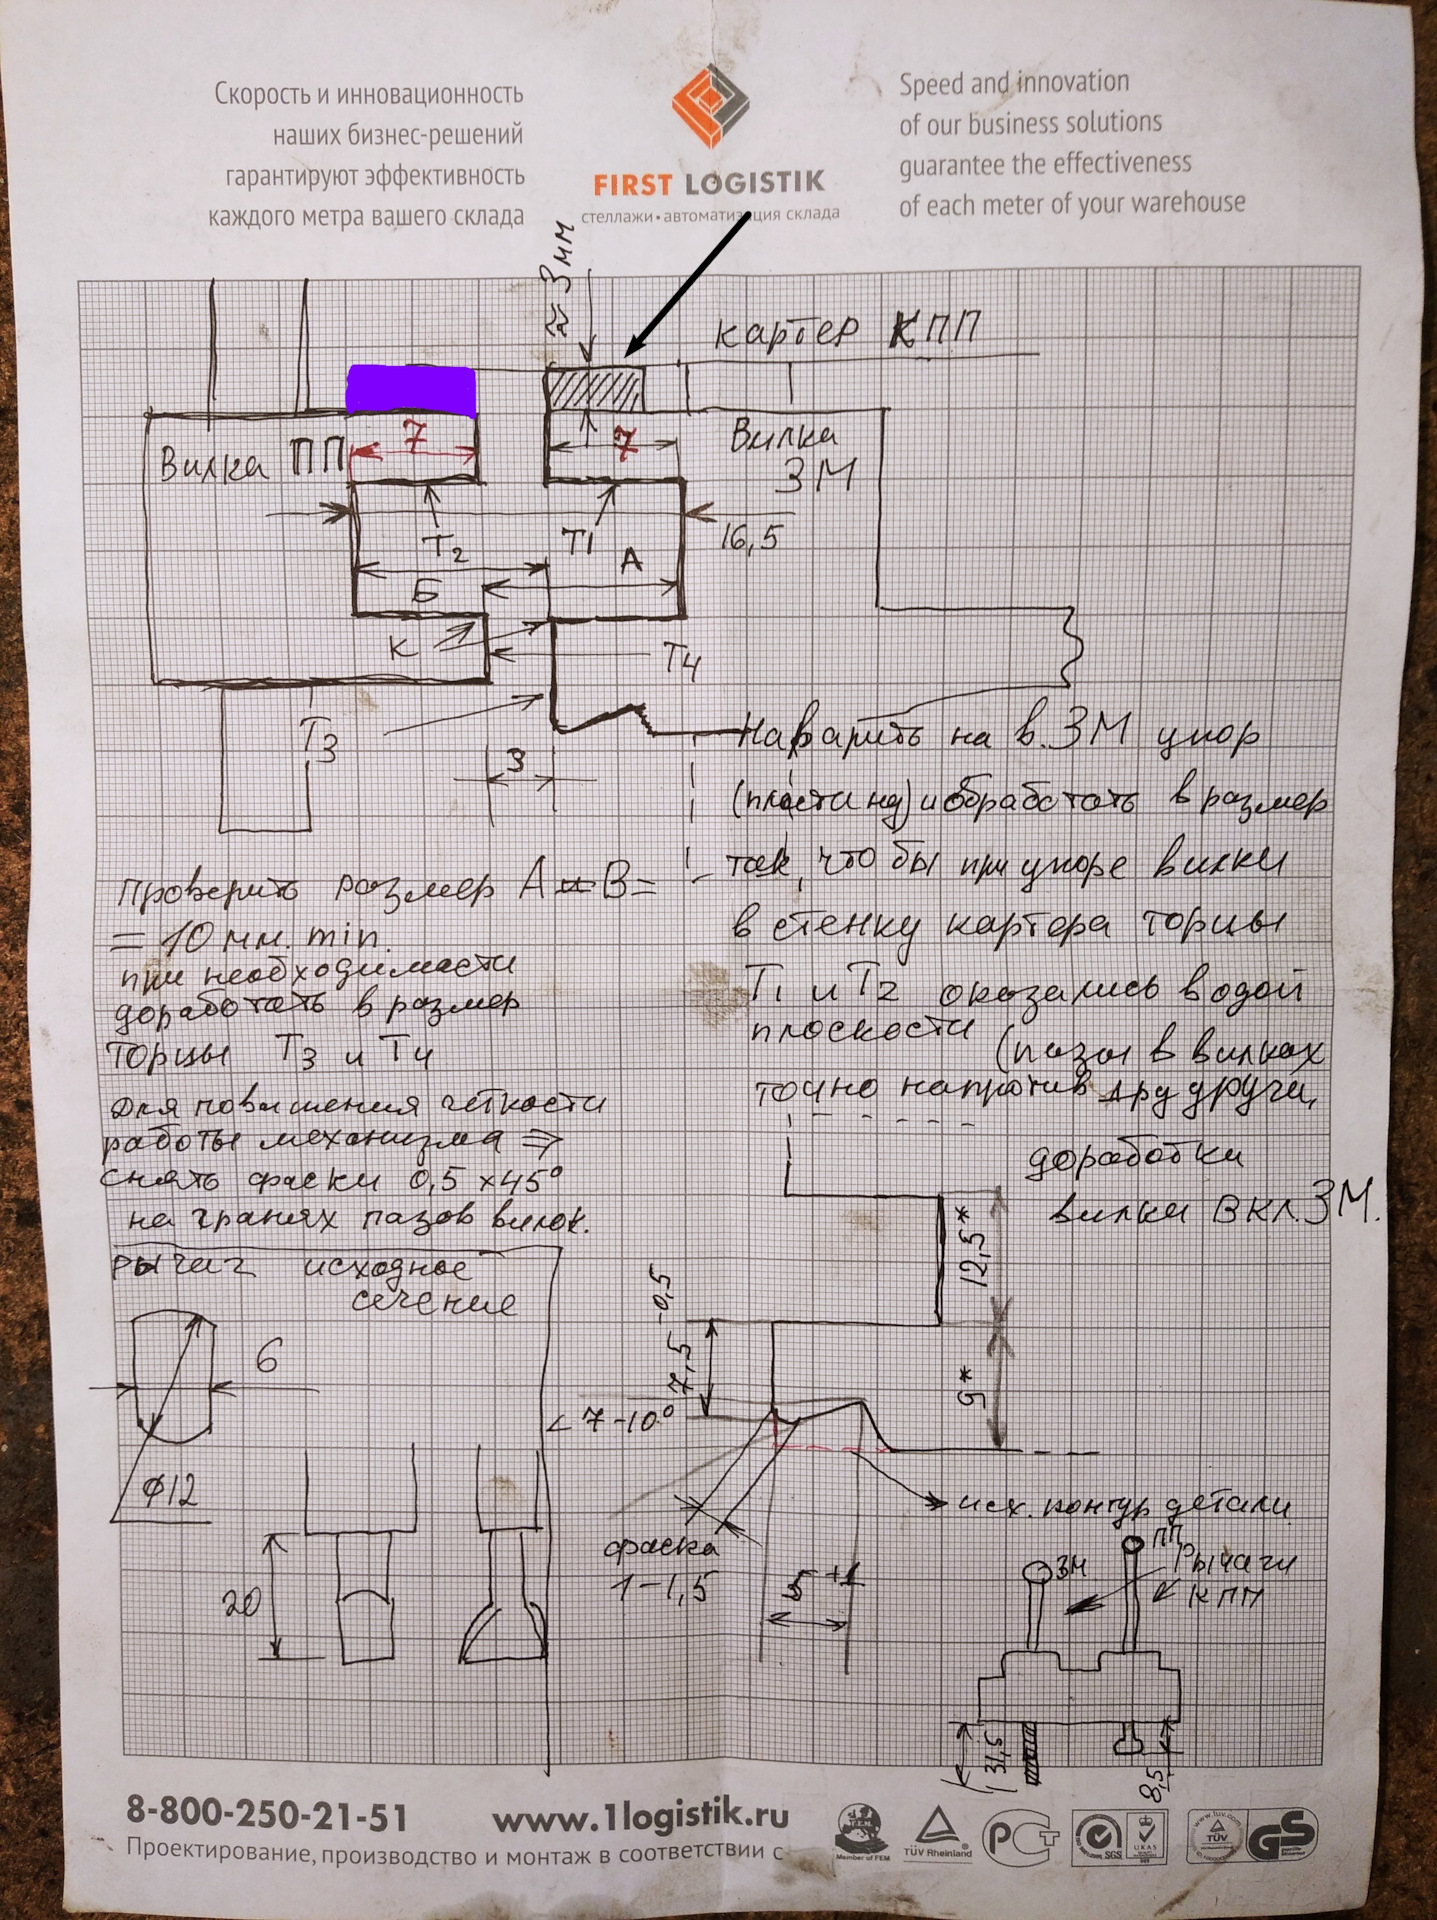 Скорость и инновационность
наших бизнес-решений
гарантируют эффективность
каждого метра вашего склада
FIRST LOGISTIK
стеллажи • автоматизация склада
Speed and innovation
of our business solutions
guarantee the effectiveness
of each meter of your warehouse
≈ 3 мм
картер КПП
Вилка ПП
7
7
Вилка
ЗМ
16,5
Т2
Т1
А
Б
К
Т4
Т3
3
Наварить на в. ЗМ упор
(пластину) и обработать в размер
так, что бы при упоре вилки
в стенку картера торцы
Т1 и Т2 оказались в одой
плоскости (пазы в вилках
точно напротив
Проверить размер А В =
= 10 мм. min.
при необходимости
доработать в размер
торцы Т3 и Т4
для повышения чёткости
работы механизма ⇒
снять фаски 0,5 х 45°
на гранях пазов вилок.
доработки
вилки вкл. ЗМ.
Рычаг исходное
сечение
6
ф12
20
12,5*
9*
7,5 -0,5
< 7-10°
фаска
1-1,5
5 +1
исх. контур детали
ЗМ
ПП
Рычаги
КПП
31,5
8,5
8-800-250-21-51
www.1logistik.ru
Проектирование, производство и монтаж в соответствии с
Member of FEM
TÜV Rheinland
РСТ
SGS
UKAS
www.tuv.com
TÜV
GS